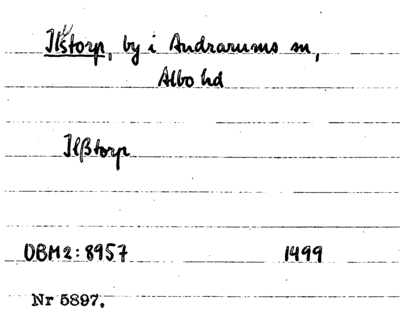 Ilstorp, by i Andrarums sn,
Albo hd
Ilßtorp
DBM2:8957 1499
Nr 5897.